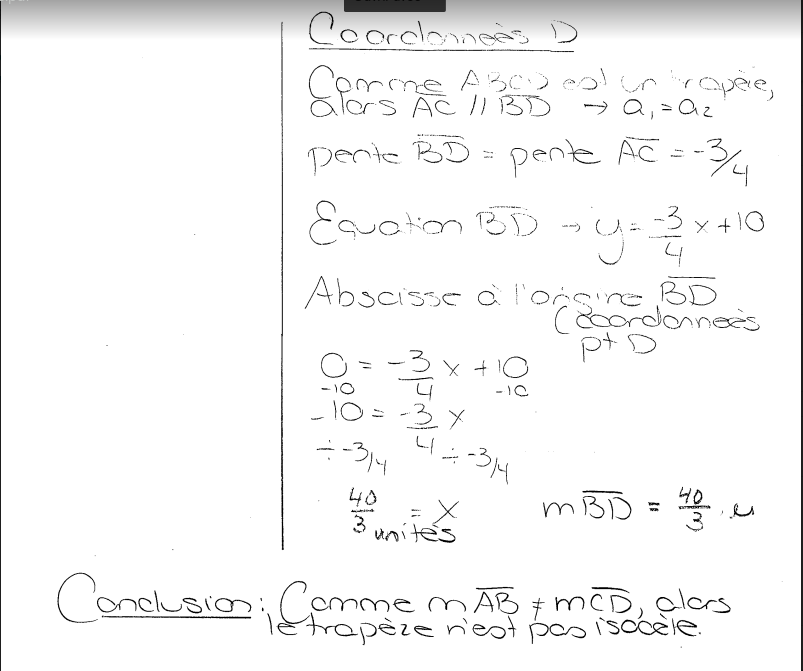 Coordonneés D
Comme ABCD est un trapèze,
alors AC // BD → a₁ = a₂
pente BD = pente AC = -3/4
Équation BD → y = -3/4 x + 10
Abscisse à l'origine BD
(coordonneés
pt D
0 = -3/4 x + 10
-10 -10
-10 = -3/4 x
÷ -3/4 ÷ -3/4
40/3 = x
unités
m BD = 40/3 u
Conclusion: Comme m AB ≠ m CD, alors
le trapèze n'est pas isocèle.